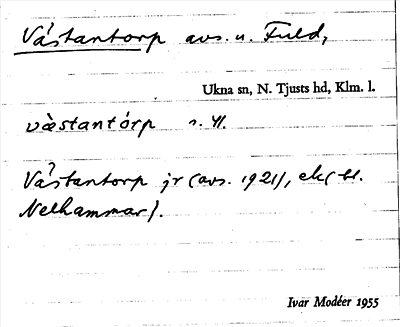 Västantorp avs. u. Fuld,
Ukna sn, N. Tjusts hd, Klm. l.
vàstantórp s. 41.
Västantorp jr (avs. 1921), ek( bl.
Nelhammar).
Ivar Modéer 1955